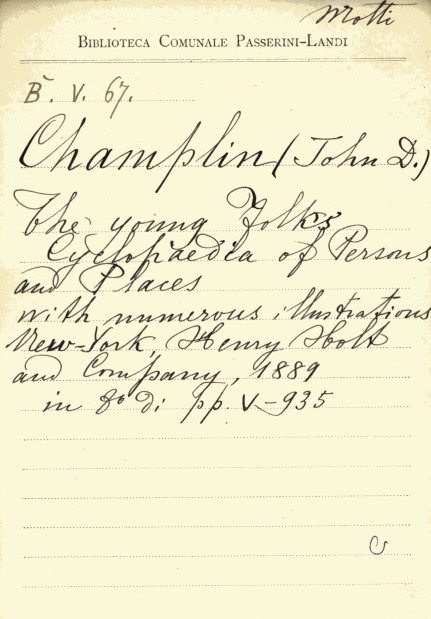 Motti
BIBLIOTECA COMUNALE PASSERINI-LANDI
B. V. 67.
Champlin (John D.)
The young Folks
Cyclopaedia of Persons
and Places
with numerous illustrations
New-York, Henry Holt
and Company, 1889
in 8° di pp. V-935